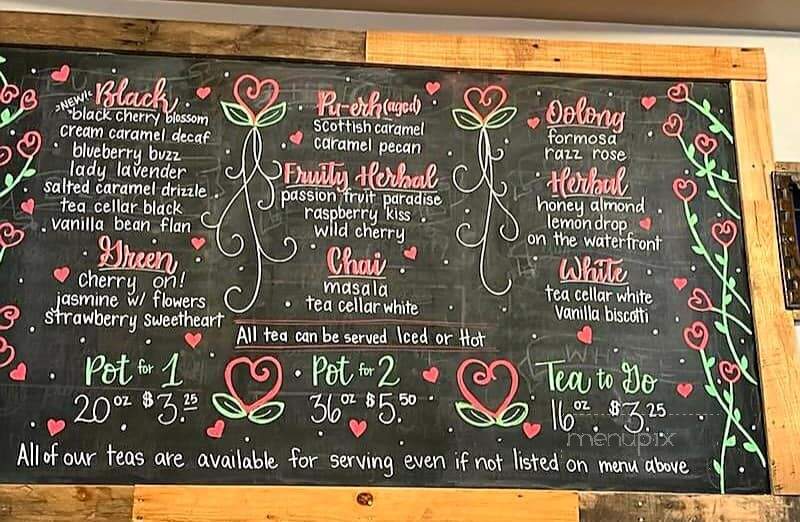 Black
NEW!
black cherry blossom
cream caramel decaf
blueberry buzz
lady lavender
salted caramel drizzle
tea cellar black
vanilla bean flan
Green
cherry on!
jasmine w/ flowers
strawberry sweetheart
Pu-erh (aged)
scottish caramel
caramel pecan
Fruity Herbal
passion fruit paradise
raspberry kiss
wild cherry
Chai
masala
tea cellar white
Oolong
formosa
razz rose
Herbal
honey almond
lemon drop
on the waterfront
White
tea cellar white
vanilla biscotti
All tea can be served Iced or Hot
Pot for 1
20 oz $3.25
Pot for 2
36 oz $5.50
Tea to Go
16 oz $3.25
menupix
All of our teas are available for serving even if not listed on menu above